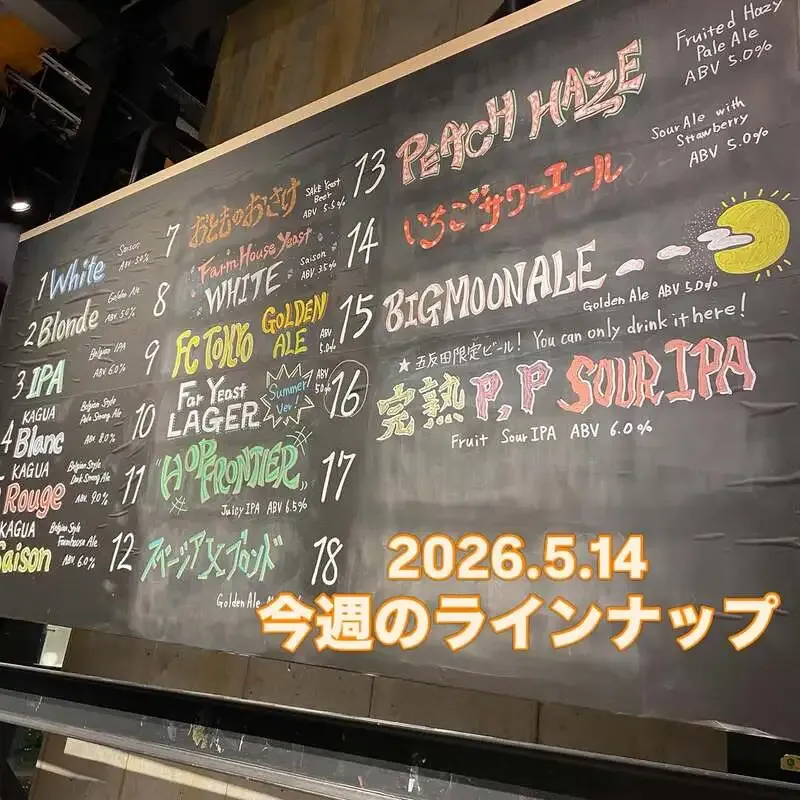 1 White
Saison
ABV 5.0%
2 Blonde
Golden Ale
ABV 5.0%
3 IPA
Belgian IPA
ABV 6.0%
4 KAGUA
Blanc
Belgian Style
Pale Strong Ale
ABV 8.0%
KAGUA
Rouge
Belgian Style
Dark Strong Ale
ABV 9.0%
KAGUA
Saison
Belgian Style
Farmhouse Ale
ABV 6.0%
7 おとものおさけ
SAKE Yeast
Beer
ABV 5.5%
8 Farm House Yeast
WHITE
Saison
ABV 3.5%
9 FC TOKYO GOLDEN
ALE
ABV
5.0%
10 Far Yeast
LAGER
Summer
Ver.!
ABV
5.0%
11 "HOP FRONTIER"
Juicy IPA ABV 6.5%
12 スペーシア X ブロンド
Golden Ale
13 PEACH HAZE
Fruited Hazy
Pale Ale
ABV 5.0%
14 いちごサワーエール
Sour Ale with
Strawberry
ABV 5.0%
15 BIGMOONALE
Golden Ale ABV 5.0%
★五反田限定ビール! You can only drink it here!
16 完熟 P,P SOUR IPA
Fruit Sour IPA ABV 6.0%
17
18
2026.5.14
今週のラインナップ